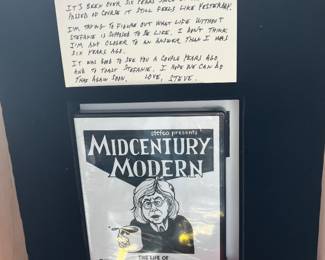 IT'S BEEN OVER SIX YEARS SINCE
PASSED. OF COURSE IT STILL FEELS LIKE YESTERDAY.
I'M TRYING TO FIGURE OUT WHAT LIFE WITHOUT
STEFANIE IS SUPPOSED TO BE LIKE. I DON'T THINK
I'M ANY CLOSER TO AN ANSWER THAN I WAS
SIX YEARS AGO.
IT WAS GOOD TO SEE YOU A COUPLE YEARS AGO
AND TO TOAST STEFANIE. I HOPE WE CAN DO
THAT AGAIN SOON. LOVE, STEVE.
stefoo presents
MIDCENTURY
MODERN
THE LIFE OF